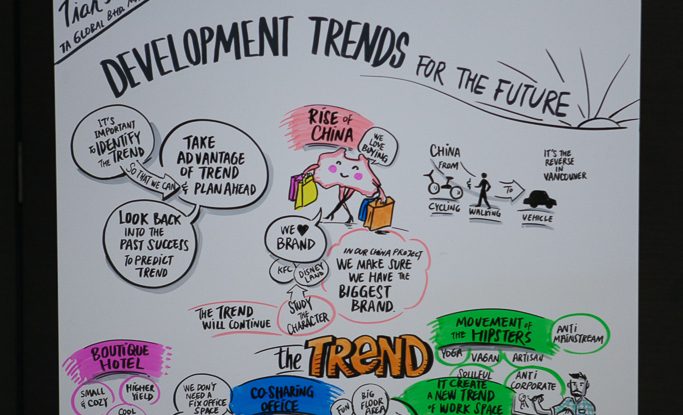 TA GLOBAL
DEVELOPMENT TRENDS
FOR THE FUTURE
IT'S
IMPORTANT
to IDENTIFY
THE TREND
SO THAT WE CAN
TAKE
ADVANTAGE
OF TREND
& PLAN AHEAD
LOOK BACK
INTO THE
PAST SUCCESS
TO PREDICT
TREND
RISE of
CHINA
WE
LOVE
BUYING
WE ♥
BRAND
KFC
DISNEY
LAND
STUDY
THE
CHARACTER
THE TREND
WILL CONTINUE
IN OUR CHINA PROJECT
WE MAKE SURE
WE HAVE THE
BIGGEST
BRAND.
CHINA
FROM
CYCLING
WALKING
TO
VEHICLE
IT'S THE
REVERSE
IN
VANCOUVER
the TREND
BOUTIQUE
HOTEL
SMALL
& COZY
HIGHER
YIELD
COOL
WE DON'T
NEED A
FIX OFFICE
SPACE
CO-SHARING
OFFICE
FUN
BIG
FLOOR
AREA
MOVEMENT of
THE HIPSTERS
ANTI
MAINSTREAM
YOGA
VAGAN
ARTISAN
SOULFUL
ANTI
CORPORATE
IT CREATE
A NEW TREND
of WORK SPACE